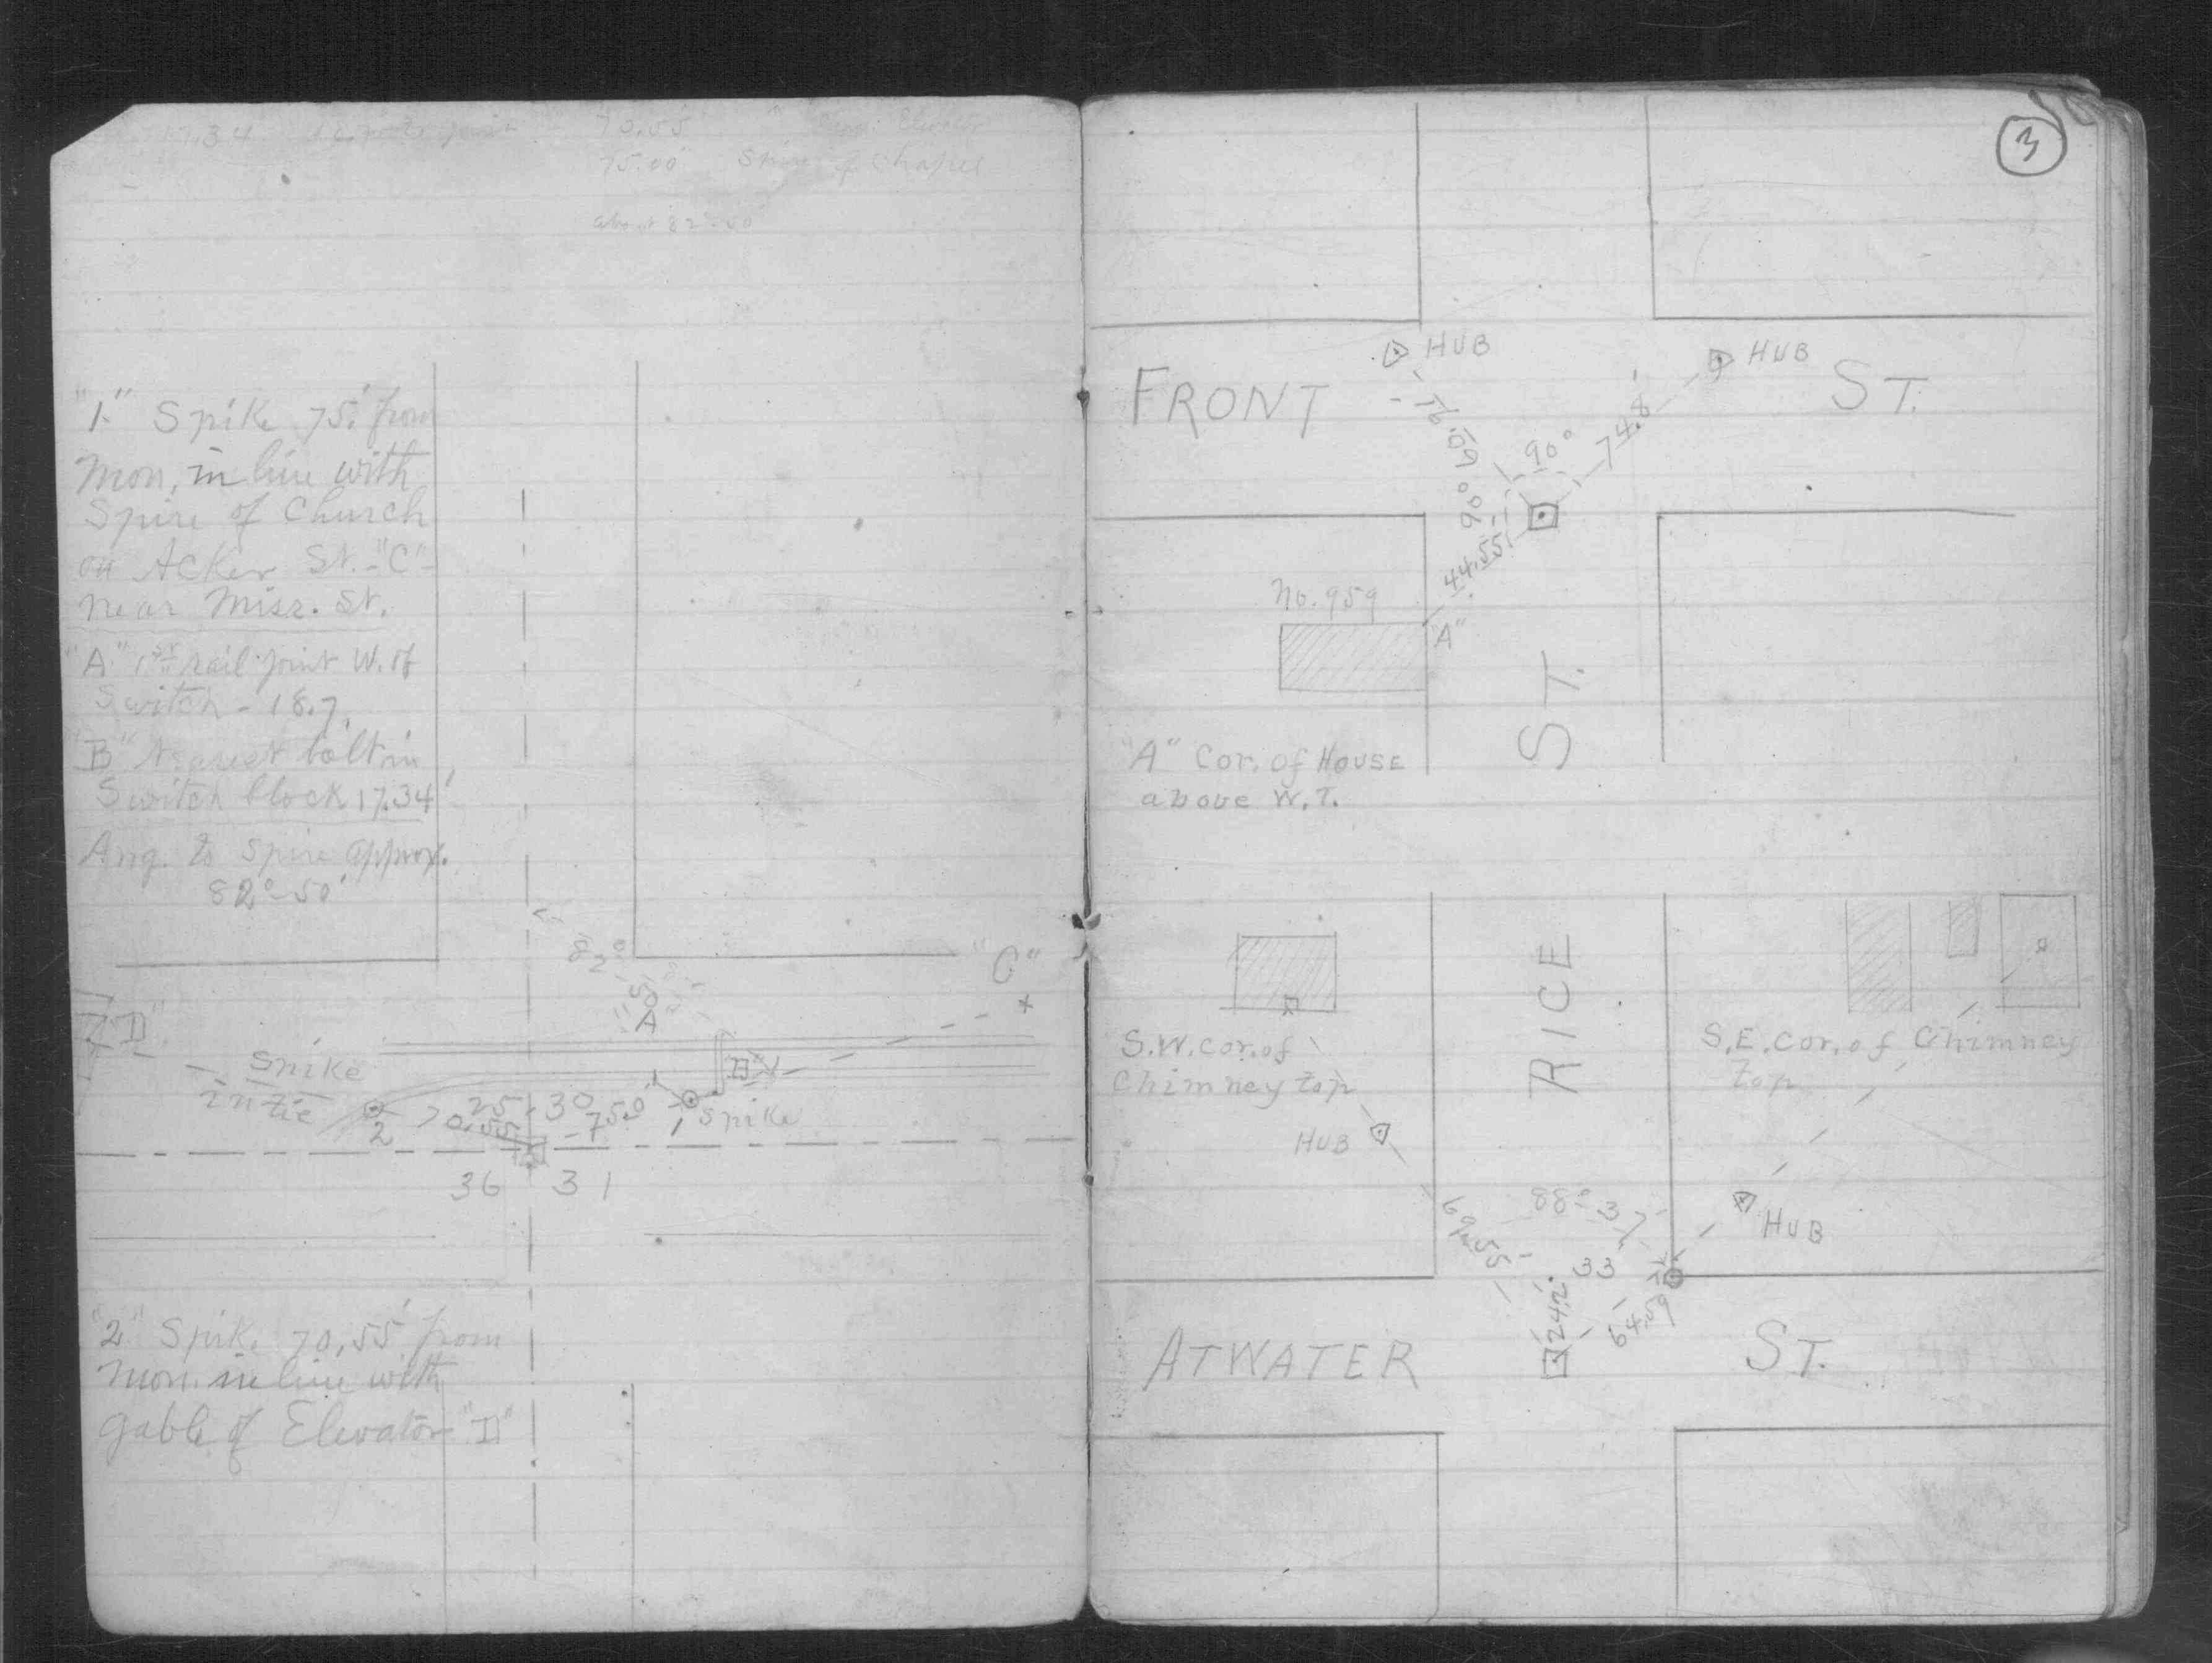 17.34
70.55
75.00 Spire of Chapel
about 82°-50
"1" Spike 75.' from
Mon. in line with
Spire of Church
on Acker St. "C"
near Miss. St.
"A" 1st rail joint W. of
Switch - 18.7
"B" Nearest bolt in
Switch block 17.34'
Ang. to Spire approx.
82°-50'
82°
50'
"C"
"A"
"D"
"B"
Spike
in tie
2
70.55
25 30
75.0'
1 Spike
36 31
"2" Spike 70.55' from
Mon. in line with
gable of Elevator "D"
3
HUB
HUB
FRONT ST.
90°
74.8'
90°
44.55'
No. 959
"A"
ST.
"A" Cor. of HOUSE
above W.T.
RICE
S.W. cor. of
Chimney top
S.E. cor. of Chimney
top
HUB
HUB
88° 37'
69.55
33
24.2'
64.59
ATWATER ST.